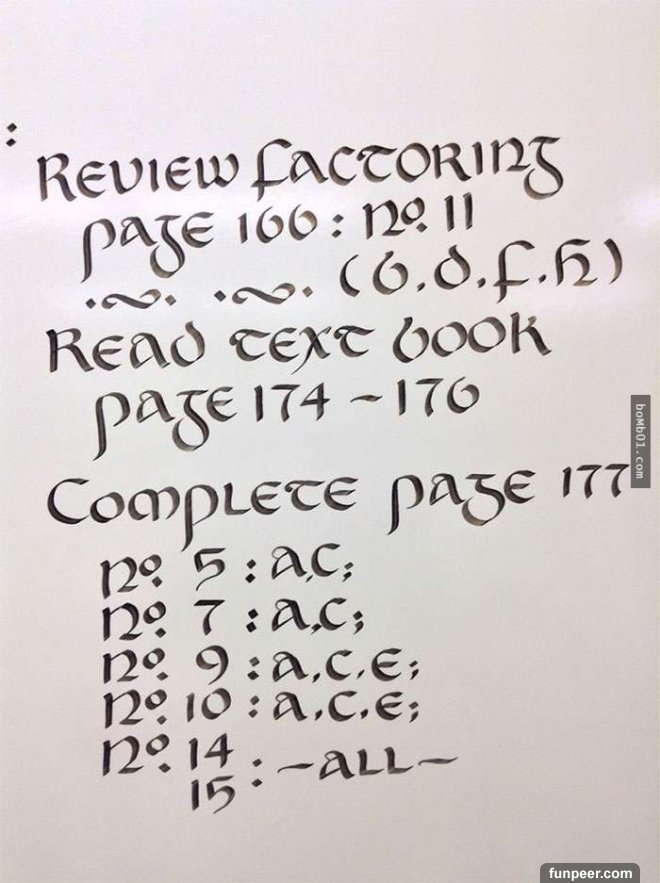 :
Review Factoring
page 166 : No. 11
(b.d.f.h)
Read text book
page 174 ~ 176
Complete page 177
No. 5 : a,c;
No. 7 : a,c;
No. 9 : a,c,e;
No. 10 : a,c,e;
No. 14
15 : ~all~
boMb01.com
funpeer.com